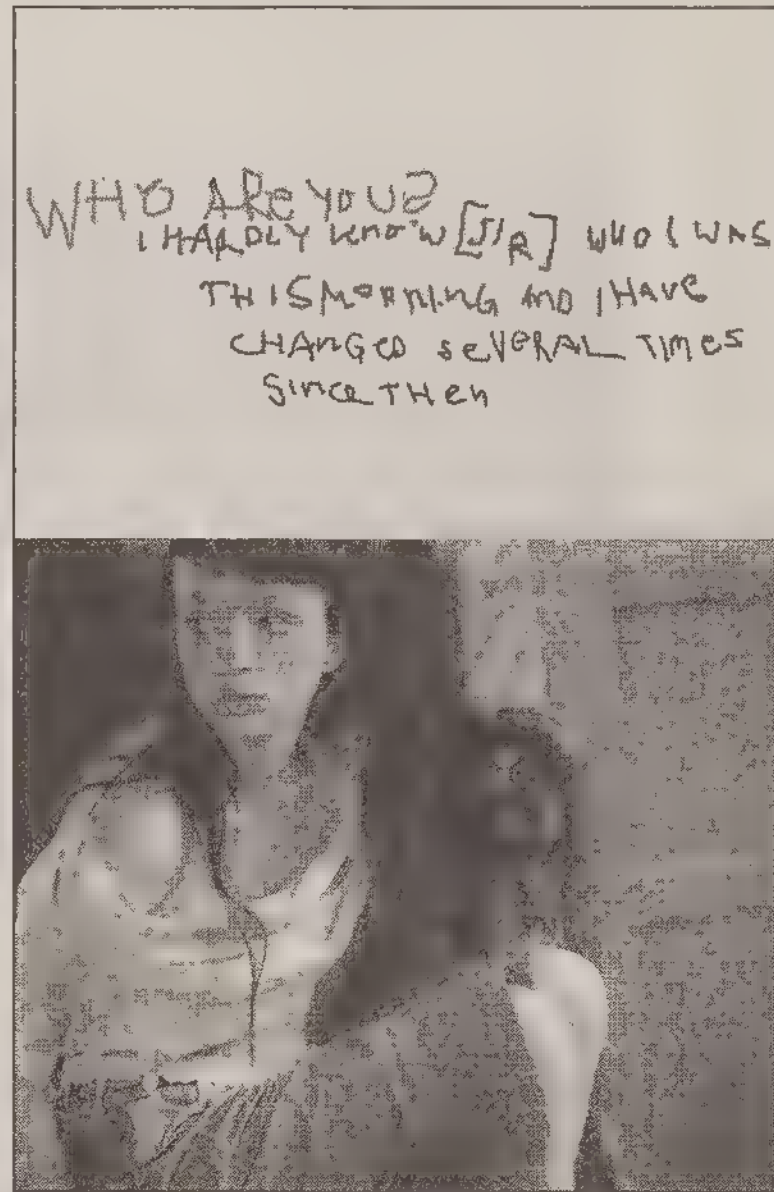 WHO ARE YOU?
I HARDLY KNOW [SIR] WHO I WAS
THIS MORNING AND I HAVE
CHANGED SEVERAL TIMES
SINCE THEN